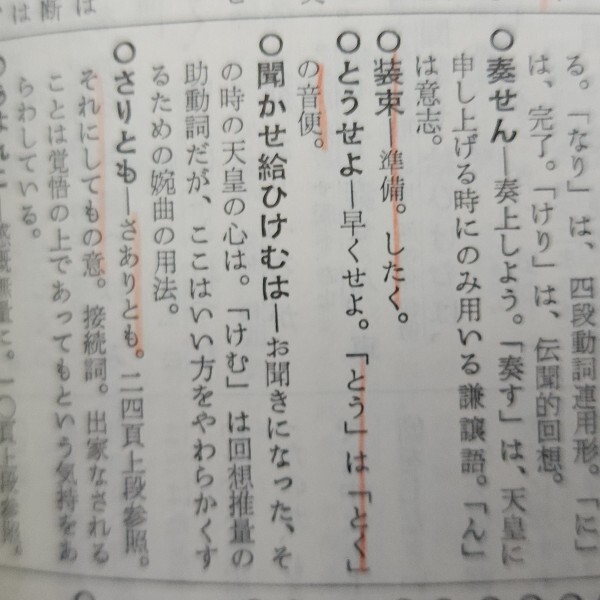 る。「なり」は、四段動詞連用形。「に」
は、完了。「けり」は、伝聞的回想。
○奏せん―奏上しよう。「奏す」は、天皇に
申し上げる時にのみ用いる謙譲語。「ん」
は意志。
○装束―準備。したく。
○とうせよ―早くせよ。「とう」は「とく」
の音便。
○聞かせ給ひけむは―お聞きになった、そ
の時の天皇の心は。「けむ」は回想推量の
助動詞だが、ここはいい方をやわらかくす
るための婉曲の用法。
○さりとも―さありとも。二四頁上段参照。
それにしてもの意。接続詞。出家なされる
ことは覚悟の上であってもという気持をあ
らわしている。